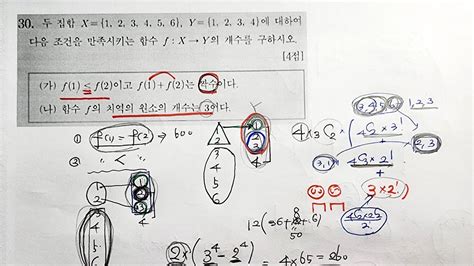 30. 두 집합 X={1, 2, 3, 4, 5, 6}, Y={1, 2, 3, 4}에 대하여
다음 조건을 만족시키는 함수 f : X → Y의 개수를 구하시오.
[4점]
(가) f(1) ≤ f(2)이고 f(1)+f(2)는 짝수이다.
(나) 함수 f의 치역의 원소의 개수는 3이다.
① f(1) = f(2) → 600
② " < "
Y
1
2
3
4
5
6
1
2
3
4
4×3C2×
3,4,5,6
1,2,3
4C2×3!
+
2,3
3,1
4C3×2!
+
3×2!
4C2×2C2
2!
1
2
3
4
5
6
1
2
3
4
12(36+8+6)
50
2×(3^4-2^4)
4×65=260